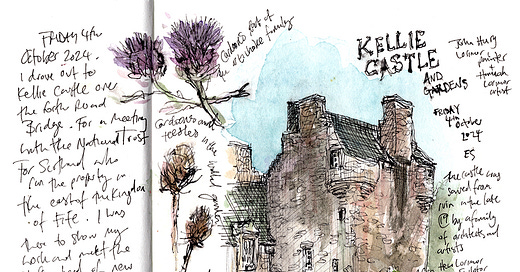 FRIDAY 4th
October 2024.
I drove out to
Kellie Castle over
the Forth Road
Bridge. For a meeting
with the National Trust
for Scotland who
run the property in
the east of the Kingdom
of Fife. I was
there to show my
work and meet the
of new
part of
the artichoke family
Cardoons and
teasles in the walled garden
KELLIE
CASTLE
AND
GARDENS
FRIDAY
4th
October
2024
ES
John Hurg
Lorimer
painter
+
Hannah
Lorimer
artist
the castle was
saved from
ruin in the late
by a family
of architects and
artists
the Lorimer